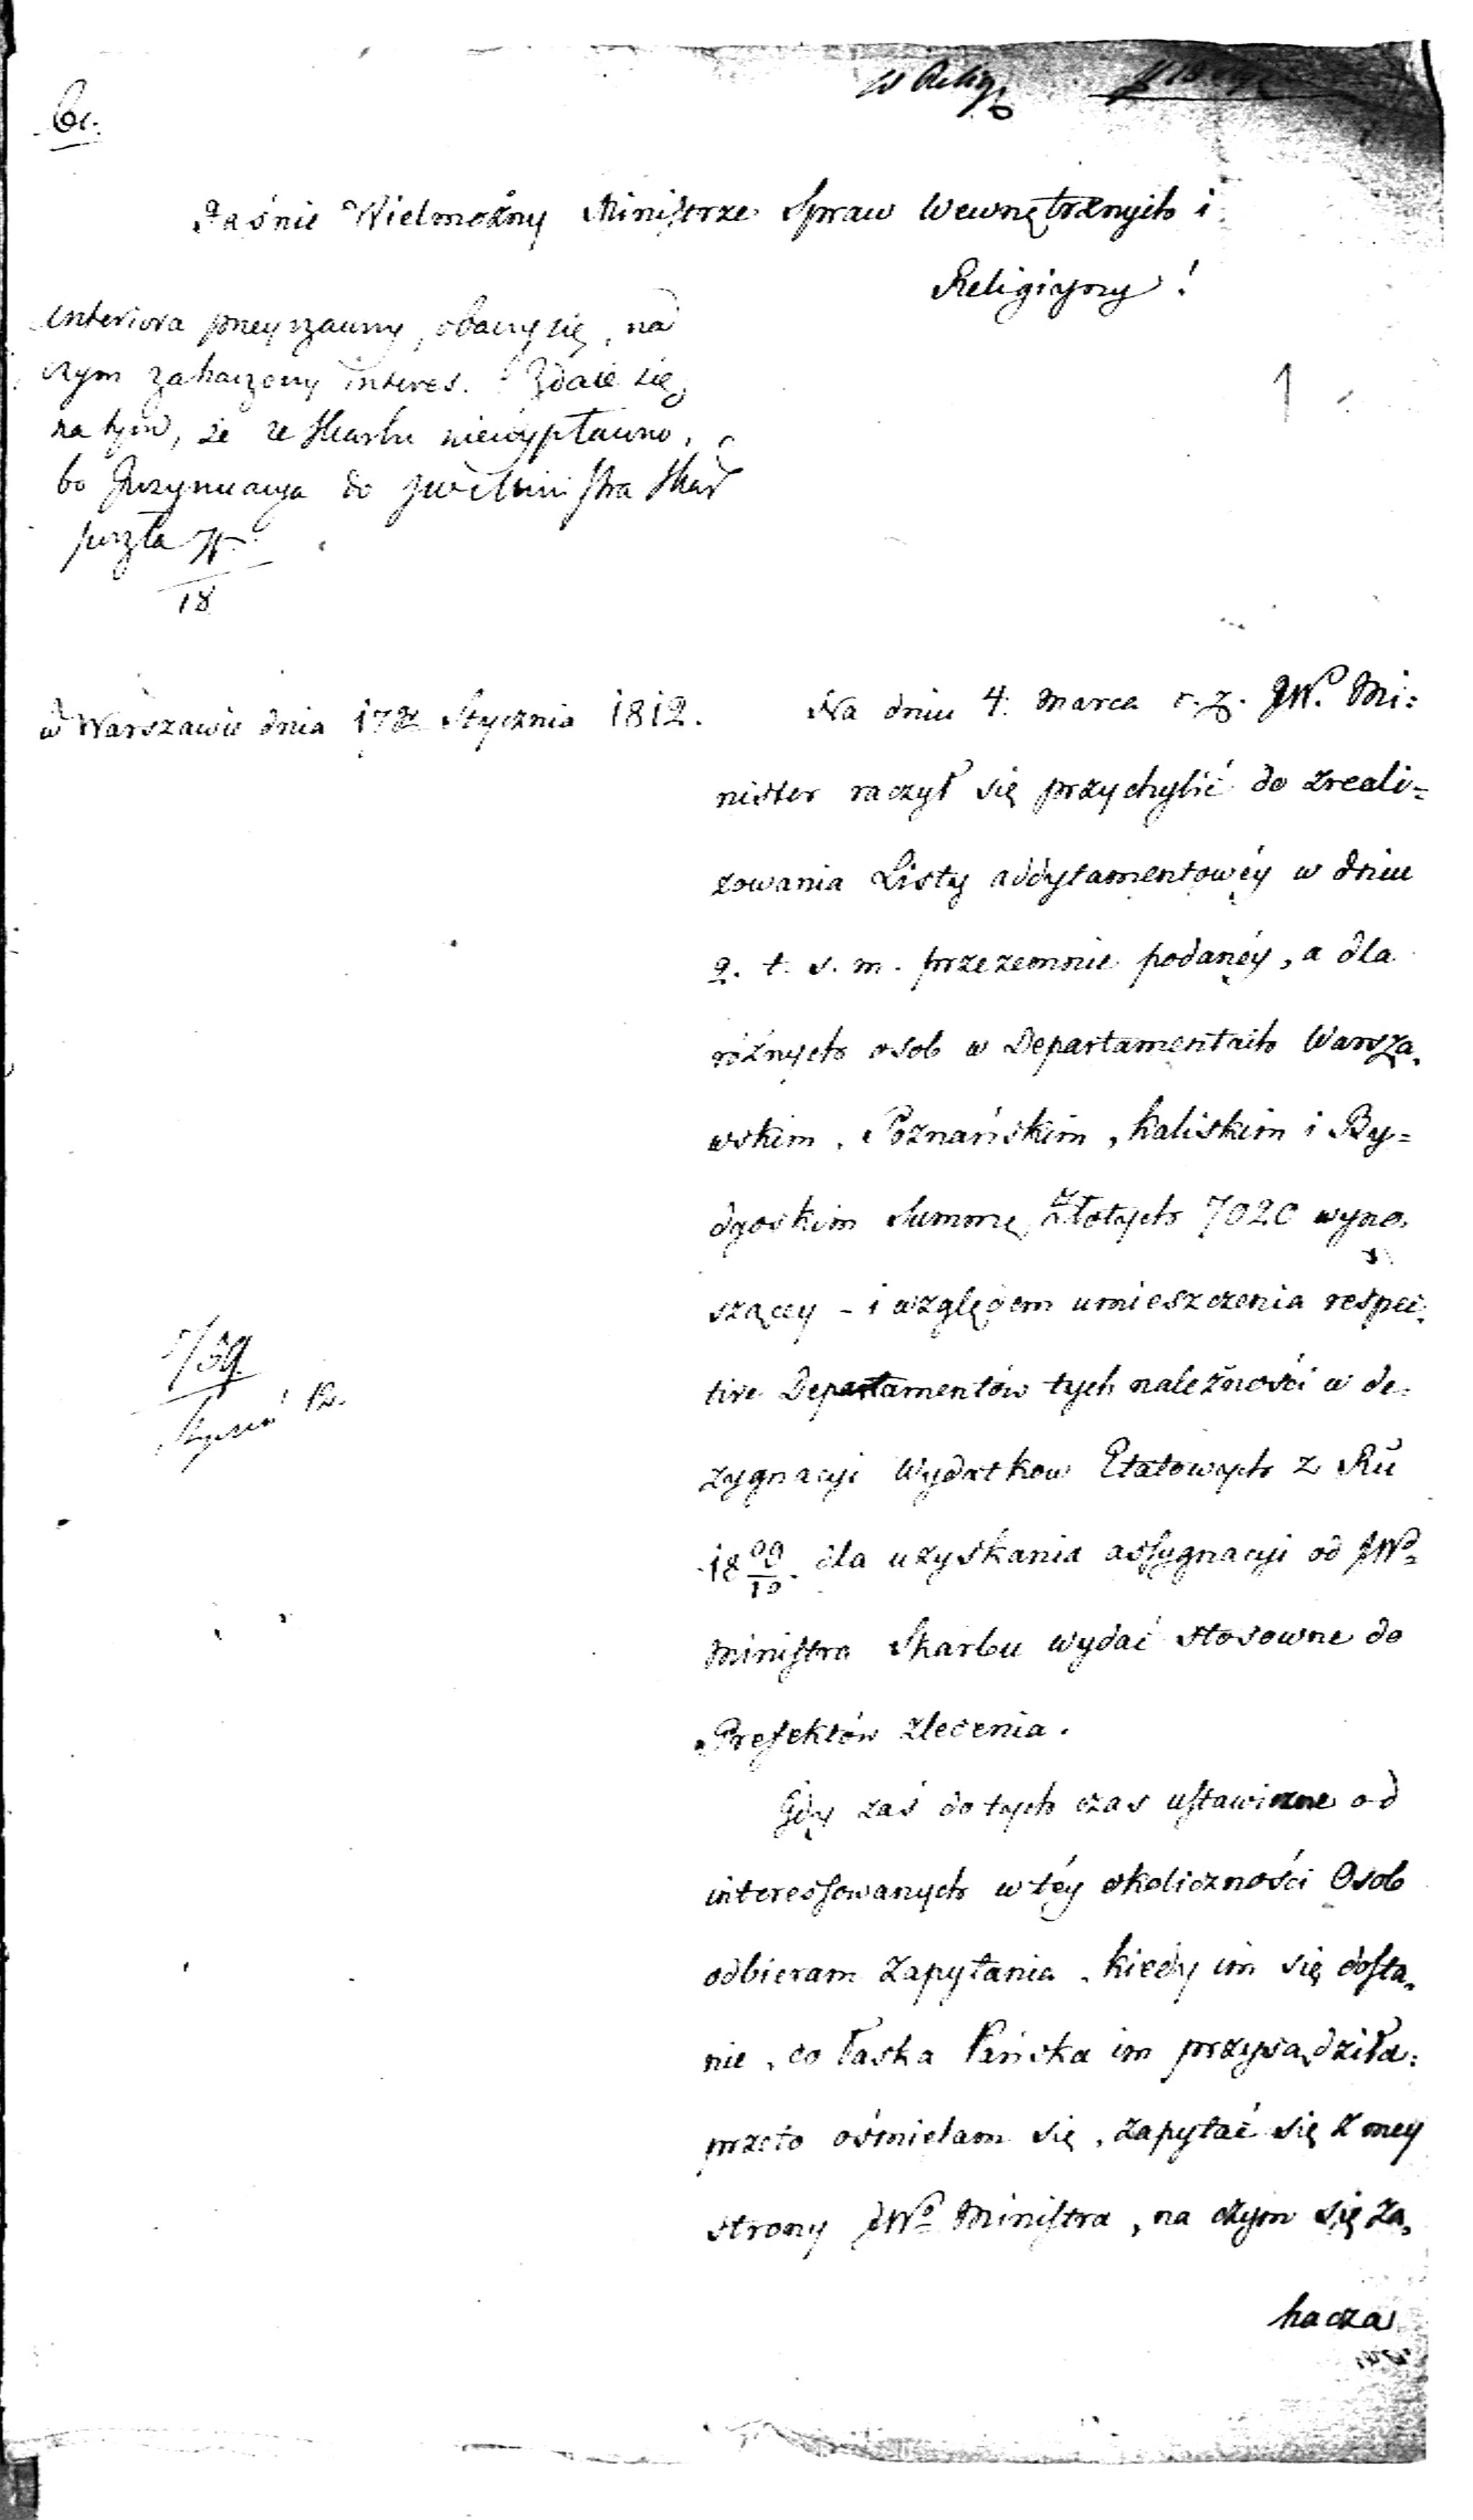 W Relig
Jaśnie Wielmożny Ministrze Spraw Wewnętrznych i
Religiyny!
Interiora przeyrzawszy, obaczy się, na
czym zahaczony interes. Zdaie się,
na tym, że ze skarbu niewypłacono,
bo do JW Ministra Skar
poszła
18
w Warszawie dnia 17 Stycznia 1812.
Na dniu 4. Marca r. z. JW. Mi:
nister raczył się przychylić do zreali=
zowania Listy addytamentowéy w dniu
2. t. s. m. przezemnie podanéy, a dla
różnych osob w Departamentach Warsza,
wskim, Poznańskim, Kaliskim i By=
dgoskim Summę Złotych 7020 wyno,
szącey - i względem umieszczenia respec,
tive Departamentów tych należności w de,
zygnacyi Wydatkow Etatowych z Ru
18 09/10. dla uzyskania assygnacyi od JWo
Ministra Skarbu wydać stosowne do
Prefektów zlecenia.
Gdy zaś do tych czas ustawiczne od
interessowanych w téy okoliczności Osob
odbieram zapytania, kiedy im się dosta,
nie, co łaska Pańska im przysądziła:
przeto ośmielam się, zapytać się z mey
strony JWo Ministra, na czym się za,
hacza